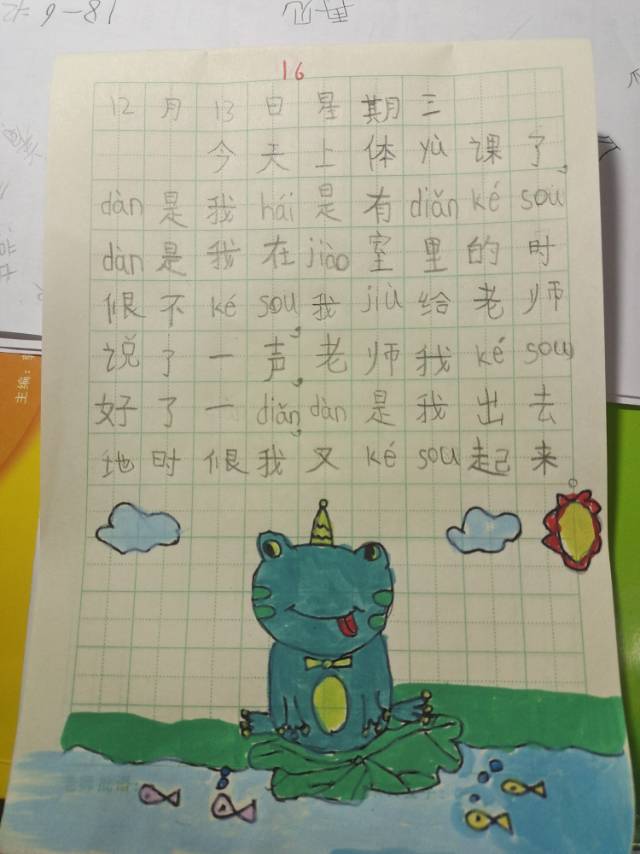 18-6=
再见
16
12月13日星期三
今天上体yù课了,
dàn是我hái是有diǎnké sou
dàn是我在jiào室里的时
佷不ké sou,我jiù给老师
说了一声,老师我ké sou
好了一diǎn,dàn是我出去
地时佷我又ké sou起来。
主编:
老师批语: